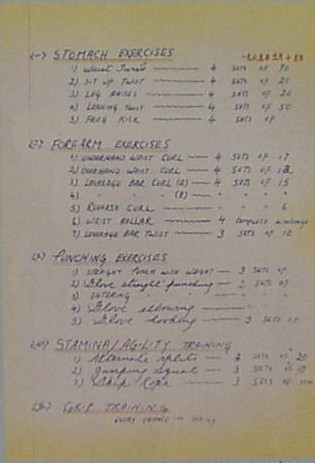 STOMACH EXERCISES
1) WAIST TWIST — 4 SETS OF 90
2) SIT UP TWIST — 4 SETS OF 20
3) LEG RAISES — 4 SETS OF 20
4) LEANING TWIST — 4 SETS OF 50
5) FROG KICK — 4 SETS OF
FOREARM EXERCISES
1) UNDERHAND WRIST CURL — 4 SETS OF 17
2) OVERHAND WRIST CURL — 4 SETS OF
3) LEVERAGE BAR CURL (2) — 4 SETS OF 15
4) " (2) —
5) REVERSE CURL — " " 6
6) WRIST ROLLAR — 4 COMPLETE WINDINGS
7) LEVERAGE BAR TWIST — 3 SETS OF 10
PUNCHING EXERCISES
1) STRAIGHT PUNCH WITH WEIGHT — 3 SETS OF
2) Glove straight punching — 3 SETS OF
3) ENTERING " " "
4) Glove elbowing — " " "
5) Glove hooking — 3 SETS OF
STAMINA/AGILITY TRAINING
1) Alternate splits — 3 SETS OF 20
2) Jumping Squat — 3 SETS OF 10
3) Skip Rope — 3 SETS OF
GRIP TRAINING
EVERY CHANCE — DAILY